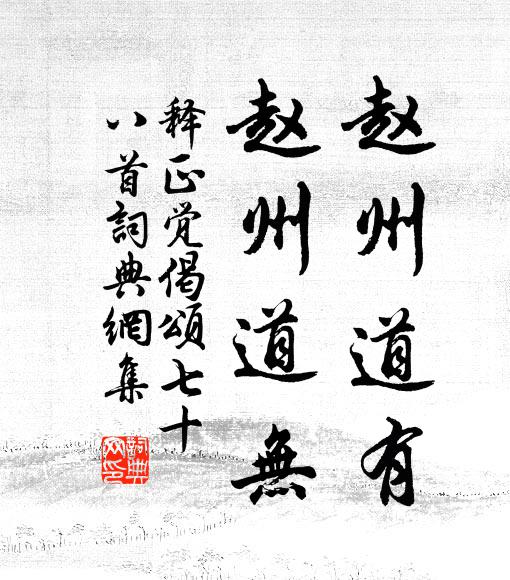 赵州道有
赵州道無
释正觉偈頌七十
八首詞典網集
詞典
网印